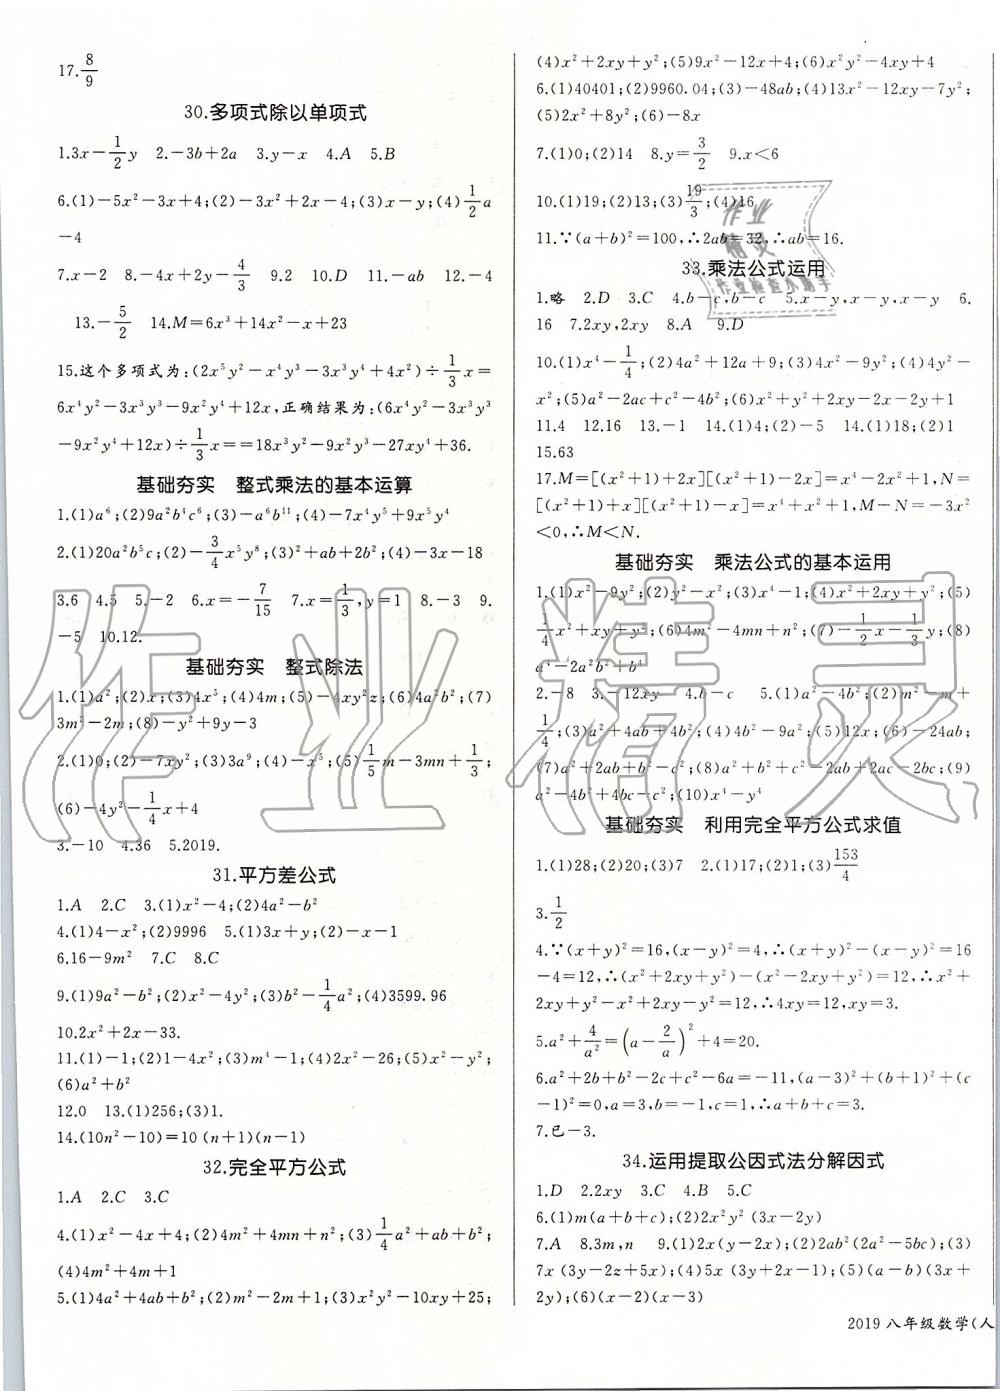 17.8/9
30.多项式除以单项式
1.3x－1/2y 2.－3b＋2a 3.y－x 4.A 5.B
6.(1)－5x²－3x＋4;(2)－3x²＋2x－4;(3)x－y;(4)1/2a
－4
7.x－2 8.－4x＋2y－4/3 9.2 10.D 11.－ab 12.－4
13.－5/2 14.M＝6x³＋14x²－x＋23
15.这个多项式为:(2x⁵y²－x⁴y³－3x³y⁴＋4x²)÷1/3x＝
6x⁴y²－3x³y³－9x²y⁴＋12x,正确结果为:(6x⁴y²－3x³y³
－9x²y⁴＋12x)÷1/3x＝＝18x³y²－9x²y³－27xy⁴＋36.
基础夯实 整式乘法的基本运算
1.(1)a⁶;(2)9a²b⁴c⁶;(3)－a⁶b¹¹;(4)－7x⁴y⁵＋9x⁵y⁴
2.(1)20a²b⁵c;(2)－3/4x⁵y⁸;(3)²＋ab＋2b²;(4)－3x－18
3.6 4.5 5.－2 6.x＝－7/15 7.x＝1/3,y＝1 8.－3 9.
－5 10.12.
基础夯实 整式除法
1.(1)a²;(2)x;(3)4x⁵;(4)4m;(5)－4xy²z;(6)4a²b²;(7)
3m²－2m;(8)－y²＋9y－3
2.(1)0;(2)－7xy²;(3)3a⁹;(4)－x⁵;(5)1/5m－3mn＋1/3;
(6)－4y²－1/4x＋4
3.－10 4.36 5.2019.
31.平方差公式
1.A 2.C 3.(1)x²－4;(2)4a²－b²
4.(1)4－x²;(2)9996 5.(1)3x＋y;(2)－x－1
6.16－9m² 7.C 8.C
9.(1)9a²－b²;(2)x²－4y²;(3)b²－1/4a²;(4)3599.96
10.2x²＋2x－33.
11.(1)－1;(2)1－4x²;(3)m⁴－1;(4)2x²－26;(5)x²－y²;
(6)a²＋b²
12.0 13.(1)256;(3)1.
14.(10n²－10)＝10(n＋1)(n－1)
32.完全平方公式
1.A 2.C 3.C
4.(1)x²－4x＋4;(2)4m²＋4mn＋n²;(3)1/4a²＋ab＋b²;
(4)4m²＋4m＋1
5.(1)4a²＋4ab＋b²;(2)m²－2m＋1;(3)x²y²－10xy＋25;
(4)x²＋2xy＋y²;(5)9x²－12x＋4;(6)x²y²－4xy＋4
6.(1)40401;(2)9960.04;(3)－48ab;(4)13x²－12xy－7y²;
(5)2x²＋8y²;(6)－8x
7.(1)0;(2)14 8.y＝3/2 9.x＜6
10.(1)19;(2)13;(3)19/3;(4)16
11.∵(a＋b)²＝100,∴2ab＝32,∴ab＝16.
33.乘法公式运用
1.略 2.D 3.C 4.b－c,b－c 5.x－y,x－y,x－y 6.
16 7.2xy,2xy 8.A 9.D
10.(1)x⁴－1/4;(2)4a²＋12a＋9;(3)4x²－9y²;(4)4y²－
x²;(5)a²－2ac＋c²－4b²;(6)x²＋y²＋2xy－2x－2y＋1
11.4 12.16 13.－1 14.(1)4;(2)－5 14.(1)18;(2)1
15.63
17.M＝[(x²＋1)＋2x][(x²＋1)－2x]＝x⁴－2x²＋1,N＝
[(x²＋1)＋x][(x²＋1)－x]＝x⁴＋x²＋1,M－N＝－3x²
＜0,∴M＜N.
基础夯实 乘法公式的基本运用
1.(1)x²－9y²;(2)y²－x²;(3)x⁴－1;(4)x²＋2xy＋y²;(5)
1/4x²＋xy＋y²;(6)4m²－4mn＋n²;(7)－1/2x－1/3y;(8)
a⁴－2a²b²＋b⁴
2.－8 3.－12xy 4.b－c 5.(1)a²－4b²;(2)m²－m＋
1/4;(3)a²＋4ab＋4b²;(4)4b²－9a²;(5)12x;(6)－24ab;
(7)a²＋2ab＋b²－c²;(8)a²＋b²＋c²－2ab＋2ac－2bc;(9)
a²－4b²＋4bc－c²;(10)x⁴－y⁴
基础夯实 利用完全平方公式求值
1.(1)28;(2)20;(3)7 2.(1)17;(2)1;(3)153/4
3.1/2
4.∵(x＋y)²＝16,(x－y)²＝4,∴(x＋y)²－(x－y)²＝16
－4＝12,∴(x²＋2xy＋y²)－(x²－2xy＋y²)＝12,∴x²＋
2xy＋y²－x²＋2xy－y²＝12,∴4xy＝12,xy＝3.
5.a²＋4/a²＝(a－2/a)²＋4＝20.
6.a²＋2b＋b²－2c＋c²－6a＝－11,(a－3)²＋(b＋1)²＋(c
－1)²＝0,a＝3,b＝－1,c＝1,∴a＋b＋c＝3.
7.已－3.
34.运用提取公因式法分解因式
1.D 2.2xy 3.C 4.B 5.C
6.(1)m(a＋b＋c);(2)2x²y²(3x－2y)
7.A 8.3m,n 9.(1)2x(y－2x);(2)2ab²(2a²－5bc);(3)
7x(3y－2z＋5x);(4)5x(3y＋2x－1);(5)(a－b)(3x＋
2y);(6)(x－2)(x－3)
2019 八年级数学(人
作业精灵
作业精灵
作业检查小助手